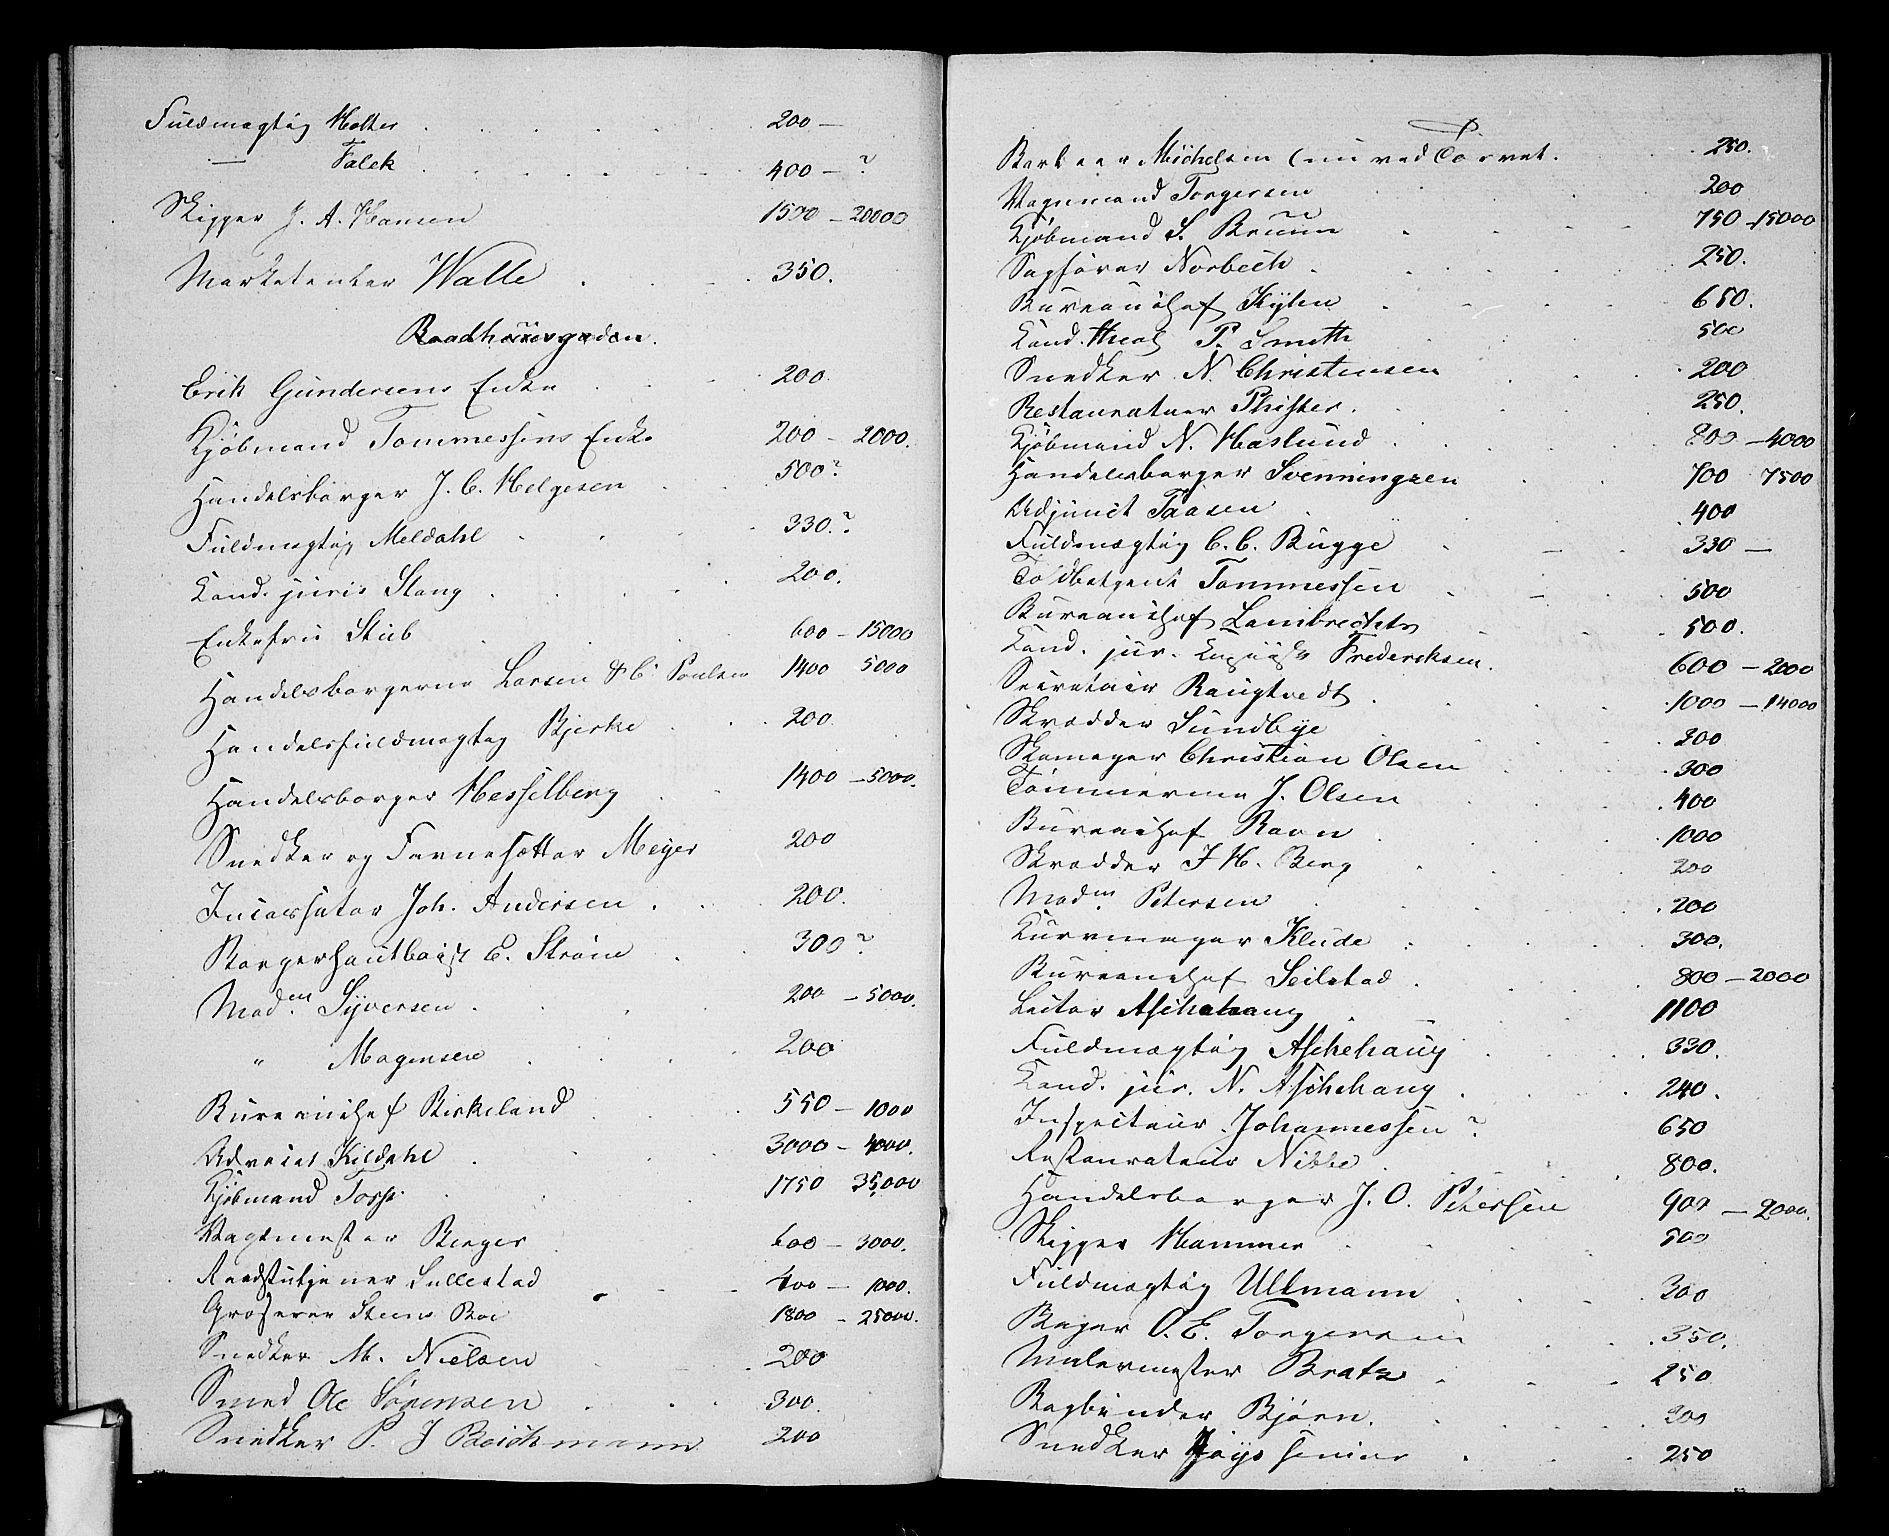 Fuldmægtig Holter . . . . . . . 200 —
— Falck . . . . . . 400 — ?
Skipper J. A. Hansen 1500 — 20000
Marketenter Walle . . . . 350.
Raadhuusgaden.
Erik Gundersens Enke . . . 200.
Kjøbmand Tommessens Enke 200 — 2000.
Handelsborger J. C. Helgesen . . 500?
Fuldmægtig Meldahl . . . 330.?
Cand. juris Stang . . . . 200.
Enkefru Stub . . . 600 — 15000
Handelsborgerne Larsen & C. Poulsen 1400 5000
Handelsfuldmægtig Bjerke . . . 200.
Handelsborger Hesselberg . . 1400 — 5000.
Snedker og Farvesætter Meyer 200
Incassator Joh. Andersen . . 200.
Borgerhautboist E. Strøm . . 300 ?
Mad.m Syversen . . . 200 — 5000.
" Magensen . . . 200
Bureauchef Birkeland . . . 550 — 1000
Advocat Kildahl . . . 3000 — 4000.
Kjøbmand Torp . . . 1750 35,000
Vagtmester Berger . . 600 — 3000.
Raadstutjener Sullestad . . 400 — 1000.
Grosserer Steens Boe 1800 — 25000.
Snedker M. Nielsen . . 200
Smed Ole Sørensen . . . 300.
Snedker P. J Boickmann 200
Barbeer Michelsen (nu ved Torvet. . . 250.
Vognmand Torgersen . . . 200
Kjøbmand S. Bruun . . . . 750 — 15000
Sagfører Norbech . . . . 250.
Bureauchef Kylen . . . . 650.
Cand. theol P. Smith 500
Snedker N. Christensen . . . 200
Restauratuer Phister. . . . 250.
Kjøbmand N. Haslund . . . 800 — 4000
Handelsborger Svenningsen . . 700 7500
Adjunct Taasen . . . . 400
Fuldmægtig C. C. Bugge . — . 330 —
Toldbetjent Tommessen . — . 500
Bureauchef Lambrechts . . . 500.
Cand. jur. Frederiksen. 600 — 2000
Secretair Raugtvedt . . . . 1000 — 14000
Skrædder Sundbye . . . 200
Skomager Christian Olsen . . . 300
Tømmermd J. Olsen . . . 400
Bureauchef Ravn . . . 1000
Skrædder J H. Berg . . . 200
Mad.m Petersen . . . 200
Kurvmager Klude . . . 300.
Bureauchef Seilstad . . . 800 — 2000
Lector Aschehaug . . . 1100
Fuldmægtig Aschehaug . . . 330.
Cand. jur. N. Aschehaug . . . 240.
Inspecteur Johannessen ? . . 650
Restaurateur Nibbe . . . 800.
Handelsborger J. O. Petersen 900 — 2000.
Skipper Hammer . . . 500
Fuldmægtig Ullmann . . . 300
Bager O. E. Torgersen . . 350.
Malermester Bratz . . . 250
Bogbinder Bjørn. . . . 200
Snedker senior . . . 250